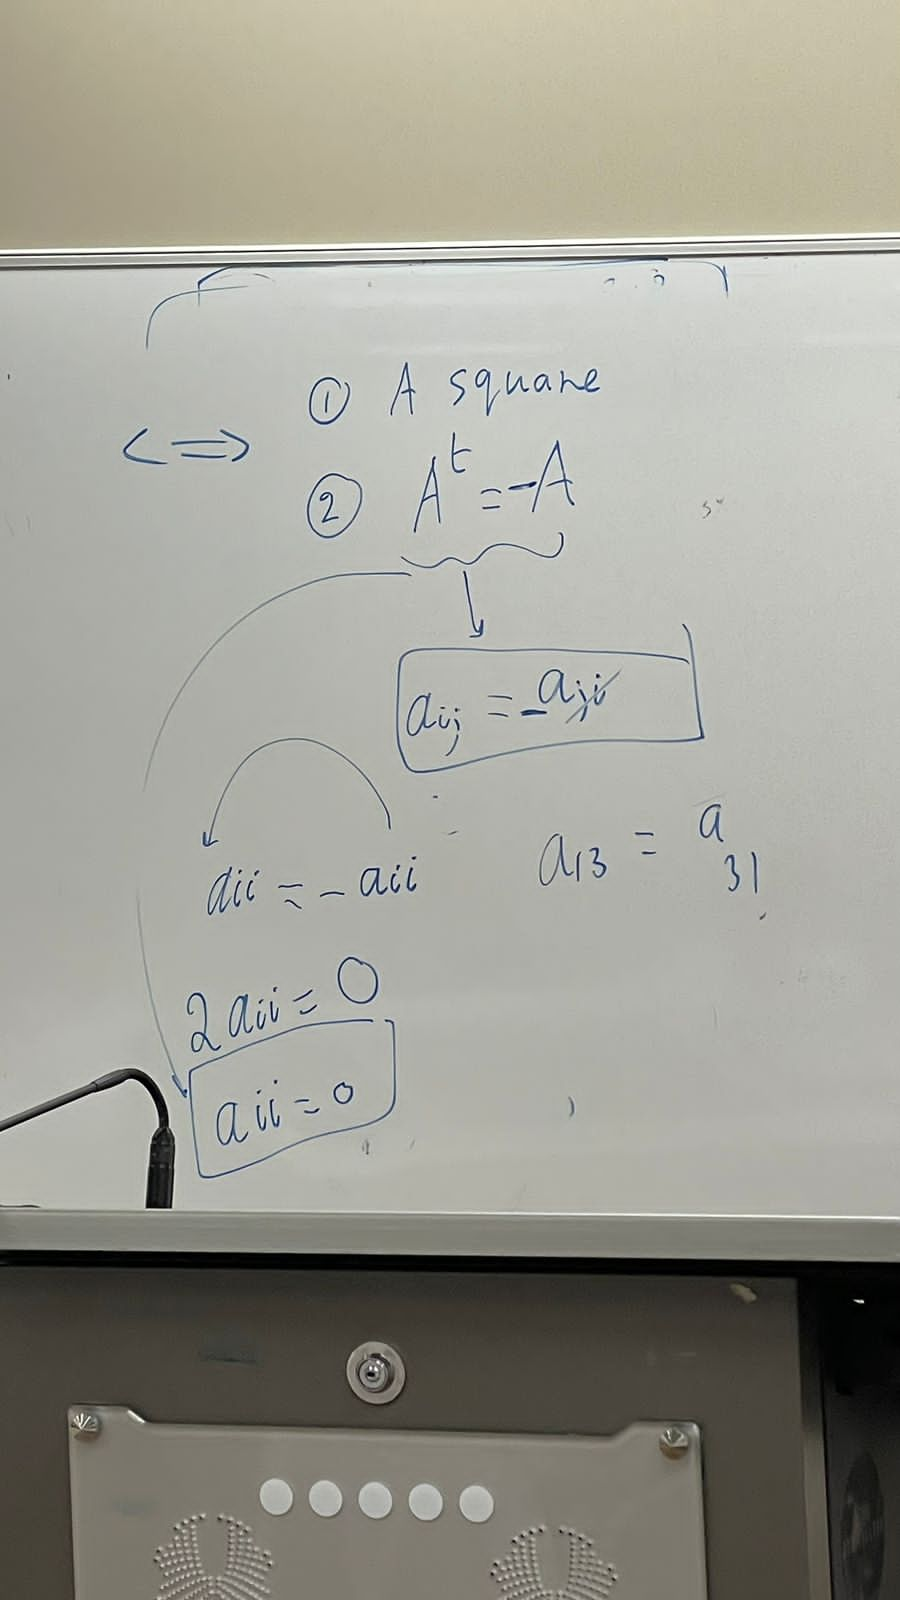 ① A square
<=>
② Aᵗ = -A
aij = -aji
aii = - aii
a13 = a31
2aii = 0
aii = 0